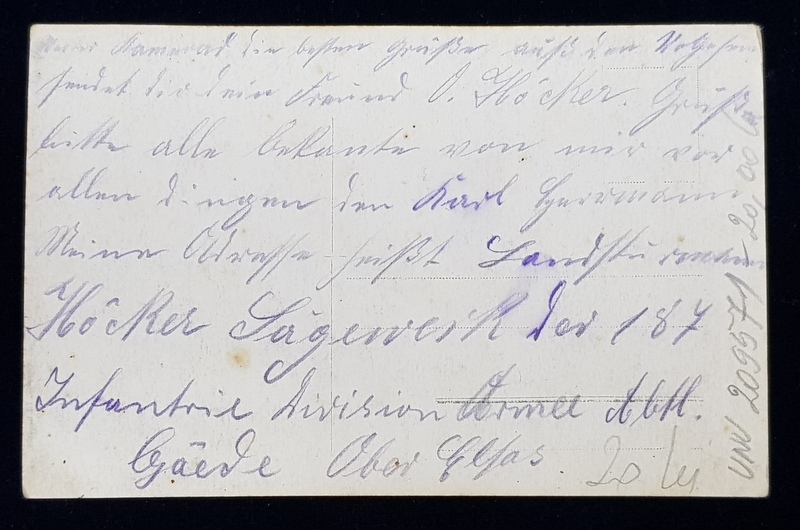 Kamerad die besten Grüße auß den Vogesen
sendet dir dein Freund O. Höcker. Grüße
bitte alle bekante von mir vor
allen dingen den Karl Herrmann
Meine Adresse heißt Landsturmmann
Höcker Sägewerk der 187
Infantrie Division Armee Abtl.
Gäede Ober Elsas
20 lei
209571